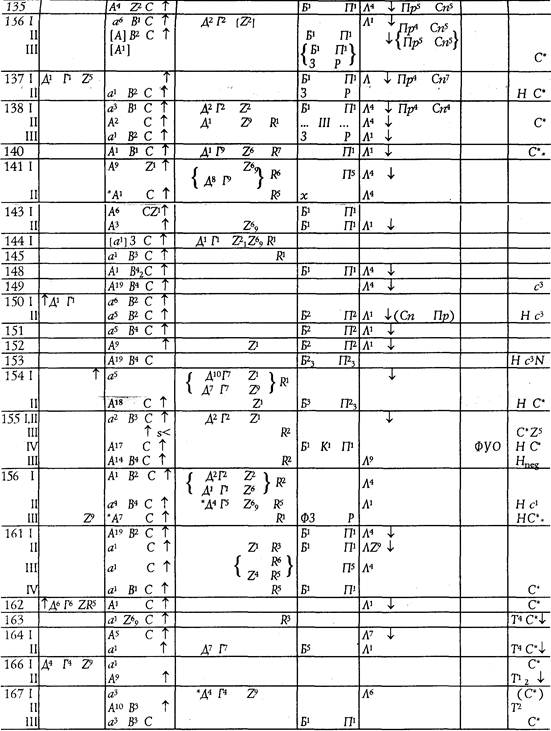 135 A⁴ Z² C ↑ Б¹ П¹ Λ⁴ ↓ Пр⁵ Сп⁵
156 I a⁶ B¹ C ↑ Д² Г² [Z²] Λ¹ ↓
II [A] B² C ↑ Б П¹ ↓ { Пр⁴ Сп⁵ Пр⁵ Сп⁵ }
III [A¹] { Б¹ П¹ З Р } C*
137 I Д¹ Г¹ Z⁵ ↑ Б¹ П¹ Λ ↓ Пр⁴ Сп⁷
II a¹ B² C ↑ З Р Н C*
138 I a³ B¹ C ↑ Д² Г² Z² Б¹ П¹ Λ⁴ ↓ Пр⁴ Сп⁴
II A² C ↑ Д¹ Z⁹ R¹ ... III ... Λ⁴ ↓ C*
III a¹ B² C ↑ З Р Λ¹ ↓
140 A¹ B¹ C ↑ Д¹ Г⁹ Z⁶ R⁷ П¹ Λ¹ ↓ C*
141 I A⁹ Z¹ ↑ { Z⁶₉ Д⁸ Г⁹ } R⁶ П⁵ Λ⁴ ↓
II *A¹ C ↑ R⁵ x Λ⁴
143 I A⁶ CZ¹↑ Б¹ П¹
II A³ ↑ Z⁶₉ Б¹ П¹ Λ¹ ↓
144 I [a¹] 3 C ↑ Д¹ Г¹ Z²₁Z⁶₉ R¹
145 a¹ B³ C ↑ R¹
148 A¹ B⁴₂C ↑ Б¹ П¹ Λ⁴ ↓
149 A¹⁹ B⁴ C ↑ Λ⁴ ↓ c³
150 I ↑Д¹ Г¹ a⁶ B² C ↑
II a⁵ B² C ↑ Б² П² Λ¹ ↓(Сп Пр) Н c³
151 a⁵ B⁴ C ↑ Б² П² Λ¹ ↓
152 A⁹ ↑ Z¹ Б² П² Λ¹ ↓
153 A¹⁹ B⁴ C Б²₃ П²₃ Н c³N
154 I ↑ a⁵ { Д¹⁰Г⁷ Z¹ Д⁷ Г⁷ Z⁹ } R¹ ↓
II A¹⁸ C ↑ Z¹ Б³ П²₃ Н C*
155 I,II a² B³ C ↑ Д² Г² Z¹ ↓
III ↑ s< R² C*Z⁵
IV A¹⁷ C ↑ Б¹ К¹ П¹ ФУО Н C*
III A¹⁴ B⁴ C ↑ R² Λ⁹ Нneg
156 I A¹ B² C ↑ { Д²Г² Z² Д¹ Г¹ Z⁶ } R² Λ⁴
II a⁴ B⁴ C ↑ *Д⁴ Г⁵ Z⁶₉ R⁵ Λ¹ Н c¹
III Z⁹ *A⁷ C ↑ R¹ ФЗ Р НC*
161 I A¹⁹ B² C ↑ Б¹ П¹ Λ⁴ ↓
II a¹ C ↑ Z¹ R³ Б¹ П¹ ΛZ⁹ ↓
III a¹ C ↑ { R⁶ Z⁴ R⁵ } П⁵ Λ⁴
IV a¹ B¹ C ↑ R⁵ Б¹ П¹ C*
162 ↑Д⁶ Г⁶ ZR⁵ A¹ C ↑ Λ¹ ↓ C*
163 a¹ Z⁶₉ C ↑ R³ T⁴ C*↓
164 I A⁵ C ↑ Λ⁷ ↓
II a¹ ↑ Д⁷ Г⁷ Б⁵ Λ¹ T⁴ C*↓
166 I Д⁴ Г⁴ Z⁹ a¹ C*
II A⁹ ↑ T¹₂ ↓
167 I a³ *Д⁴ Г⁴ Z⁹ Λ⁶ (C*)
II A¹⁰ B³ ↑ T²
III a³ B³ C Б¹ П¹ C*